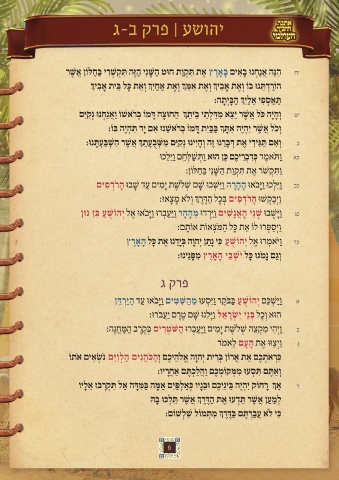 יהושע | פרק ב-ג
יח הִנֵּה אֲנַחְנוּ בָאִים בָּאָרֶץ אֶת תִּקְוַת חוּט הַשָּׁנִי הַזֶּה תִּקְשְׁרִי בַּחַלּוֹן אֲשֶׁר
הוֹרַדְתֵּנוּ בוֹ וְאֶת אָבִיךְ וְאֶת אִמֵּךְ וְאֶת אַחַיִךְ וְאֵת כָּל בֵּית אָבִיךְ
תַּאַסְפִי אֵלַיִךְ הַבָּיְתָה:
יט וְהָיָה כֹּל אֲשֶׁר יֵצֵא מִדַּלְתֵי בֵיתֵךְ הַחוּצָה דָּמוֹ בְרֹאשׁוֹ וַאֲנַחְנוּ נְקִיִּם
וְכֹל אֲשֶׁר יִהְיֶה אִתָּךְ בַּבַּיִת דָּמוֹ בְרֹאשֵׁנוּ אִם יָד תִּהְיֶה בּוֹ:
כ וְאִם תַּגִּידִי אֶת דְּבָרֵנוּ זֶה וְהָיִינוּ נְקִיִּם מִשְּׁבֻעָתֵךְ אֲשֶׁר הִשְׁבַּעְתָּנוּ:
כא וַתֹּאמֶר כְּדִבְרֵיכֶם כֶּן הוּא וַתְּשַׁלְּחֵם וַיֵּלֵכוּ
וַתִּקְשֹׁר אֶת תִּקְוַת הַשָּׁנִי בַּחַלּוֹן:
כב וַיֵּלְכוּ וַיָּבֹאוּ הָהָרָה וַיֵּשְׁבוּ שָׁם שְׁלֹשֶׁת יָמִים עַד שָׁבוּ הָרֹדְפִים
וַיְבַקְשׁוּ הָרֹדְפִים בְּכָל הַדֶּרֶךְ וְלֹא מָצָאוּ:
כג וַיָּשֻׁבוּ שְׁנֵי הָאֲנָשִׁים וַיֵּרְדוּ מֵהָהָר וַיַּעַבְרוּ וַיָּבֹאוּ אֶל יְהוֹשֻׁעַ בִּן נוּן
וַיְסַפְּרוּ לוֹ אֵת כָּל הַמֹּצְאוֹת אוֹתָם:
כד וַיֹּאמְרוּ אֶל יְהוֹשֻׁעַ כִּי נָתַן יְהוָה בְּיָדֵנוּ אֶת כָּל הָאָרֶץ
וְגַם נָמֹגוּ כָּל יֹשְׁבֵי הָאָרֶץ מִפָּנֵינוּ:
פרק ג
א וַיַּשְׁכֵּם יְהוֹשֻׁעַ בַּבֹּקֶר וַיִּסְעוּ מֵהַשִּׁטִּים וַיָּבֹאוּ עַד הַיַּרְדֵּן
הוּא וְכָל בְּנֵי יִשְׂרָאֵל וַיָּלִנוּ שָׁם טֶרֶם יַעֲבֹרוּ:
ב וַיְהִי מִקְצֵה שְׁלֹשֶׁת יָמִים וַיַּעַבְרוּ הַשֹּׁטְרִים בְּקֶרֶב הַמַּחֲנֶה:
ג וַיְצַוּוּ אֶת הָעָם לֵאמֹר
כִּרְאֹתְכֶם אֵת אֲרוֹן בְּרִית יְהוָה אֱלֹהֵיכֶם וְהַכֹּהֲנִים הַלְוִיִּם נֹשְׂאִים אֹתוֹ
וְאַתֶּם תִּסְעוּ מִמְּקוֹמְכֶם וַהֲלַכְתֶּם אַחֲרָיו:
ד אַךְ רָחוֹק יִהְיֶה בֵּינֵיכֶם וּבֵנָיו כְּאַלְפַּיִם אַמָּה בַּמִּדָּה אַל תִּקְרְבוּ אֵלָיו
לְמַעַן אֲשֶׁר תֵּדְעוּ אֶת הַדֶּרֶךְ אֲשֶׁר תֵּלְכוּ בָהּ
כִּי לֹא עֲבַרְתֶּם בַּדֶּרֶךְ מִתְּמוֹל שִׁלְשׁוֹם: